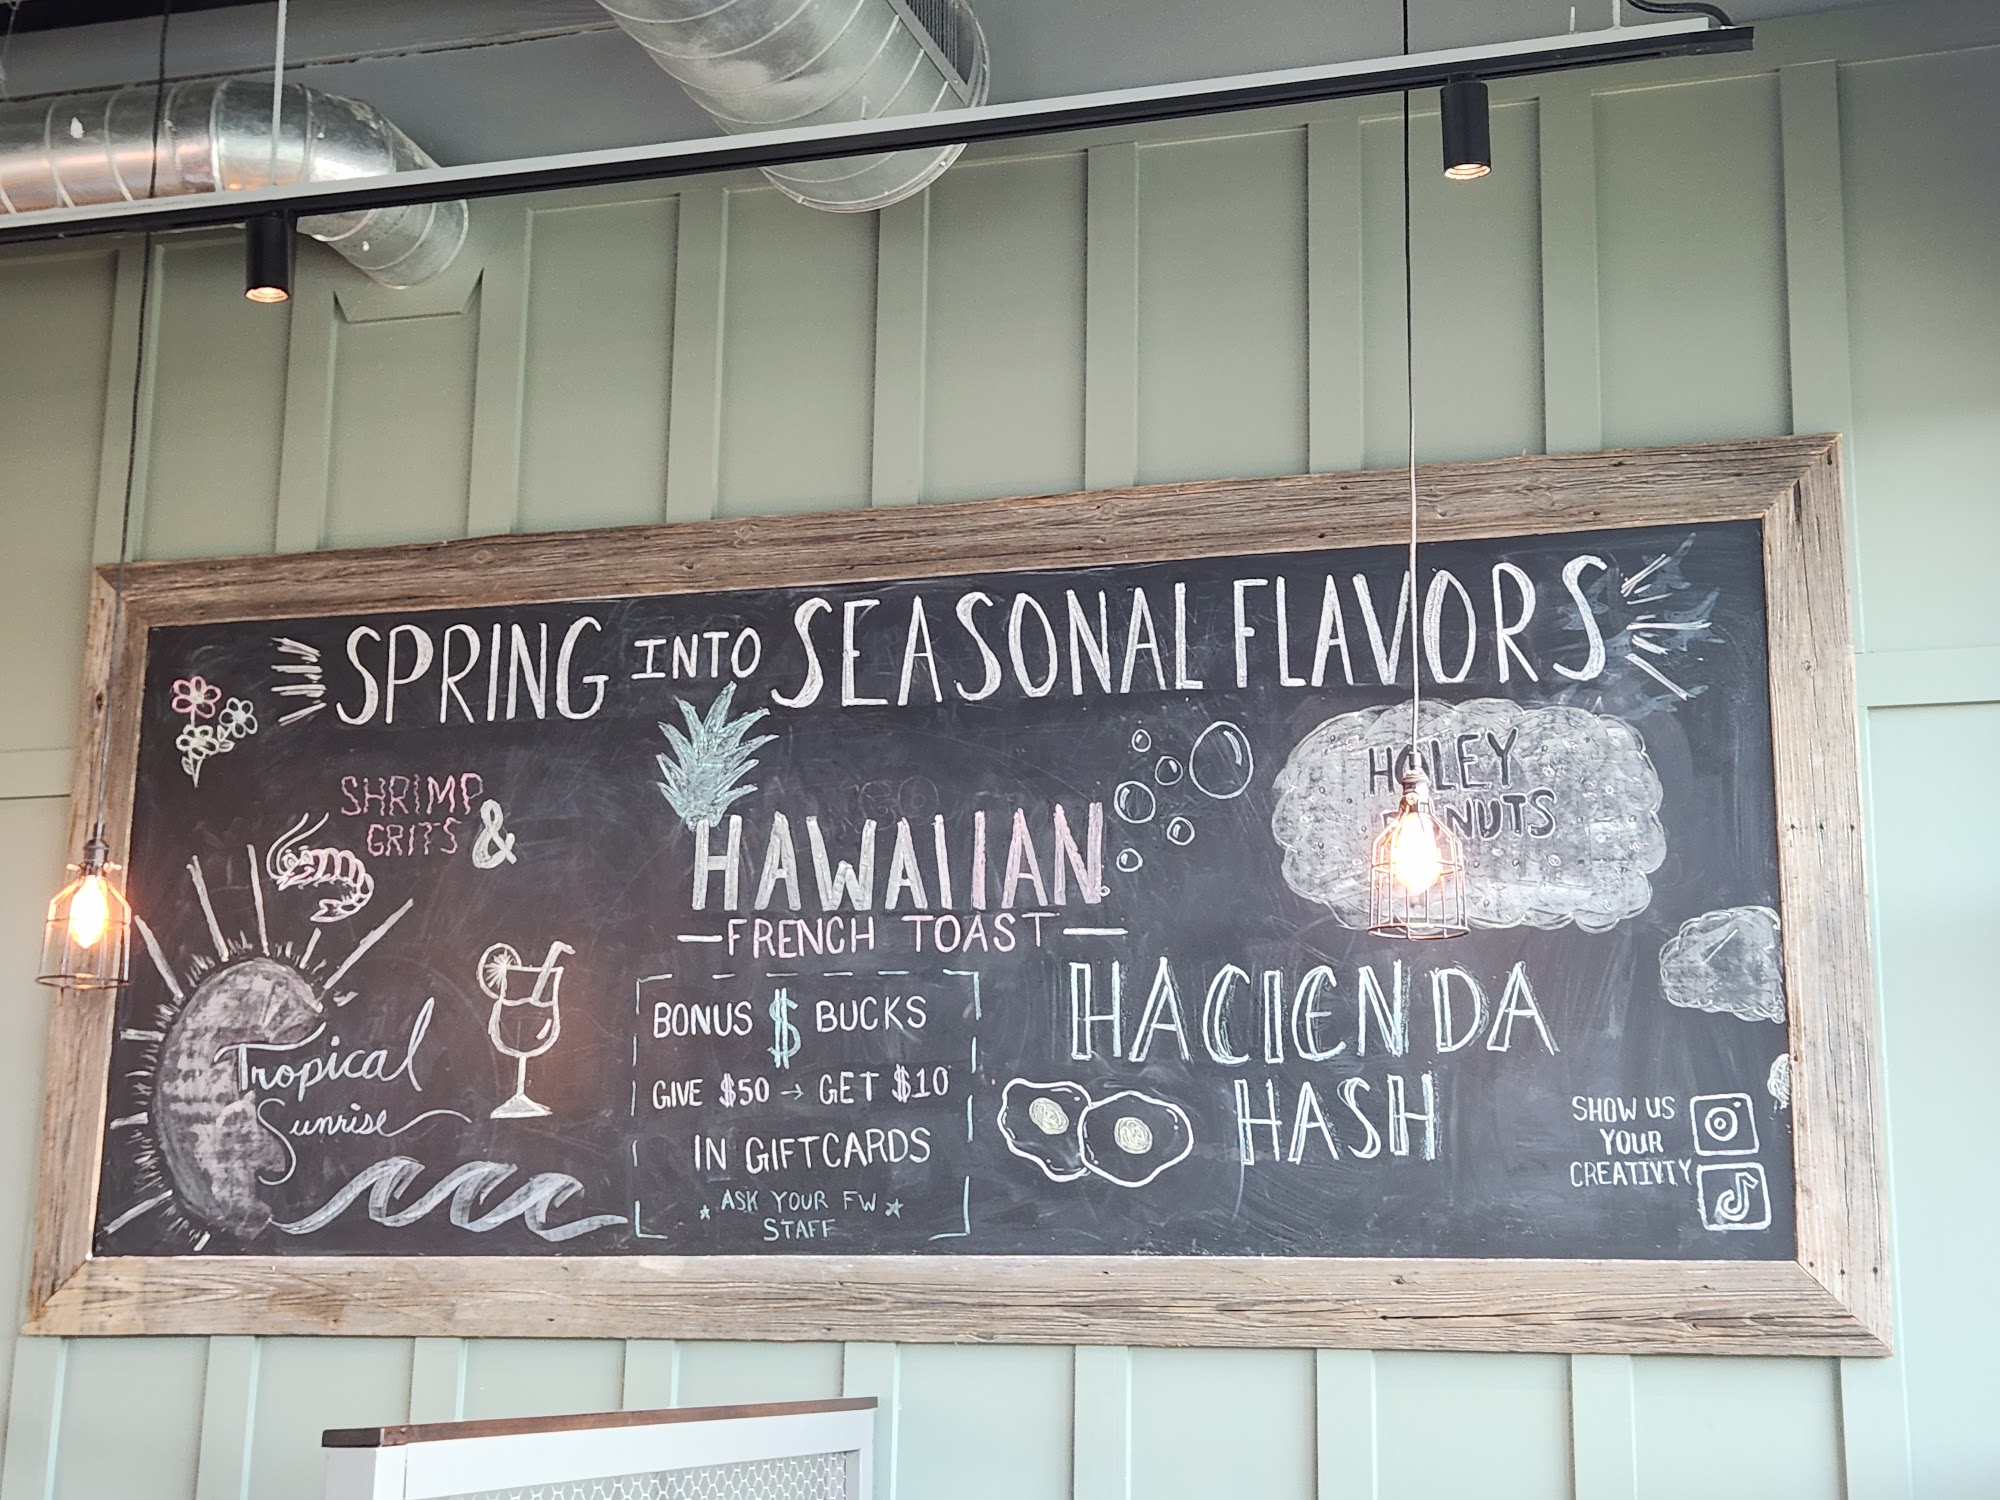 SPRING INTO SEASONAL FLAVORS
SHRIMP &
GRITS
HAWAIIAN
FRENCH TOAST
HOLEY
NUTS
Tropical
Sunrise
BONUS $ BUCKS
GIVE $50 → GET $10
IN GIFTCARDS
* ASK YOUR FW *
STAFF
HACIENDA
HASH
SHOW US
YOUR
CREATIVITY